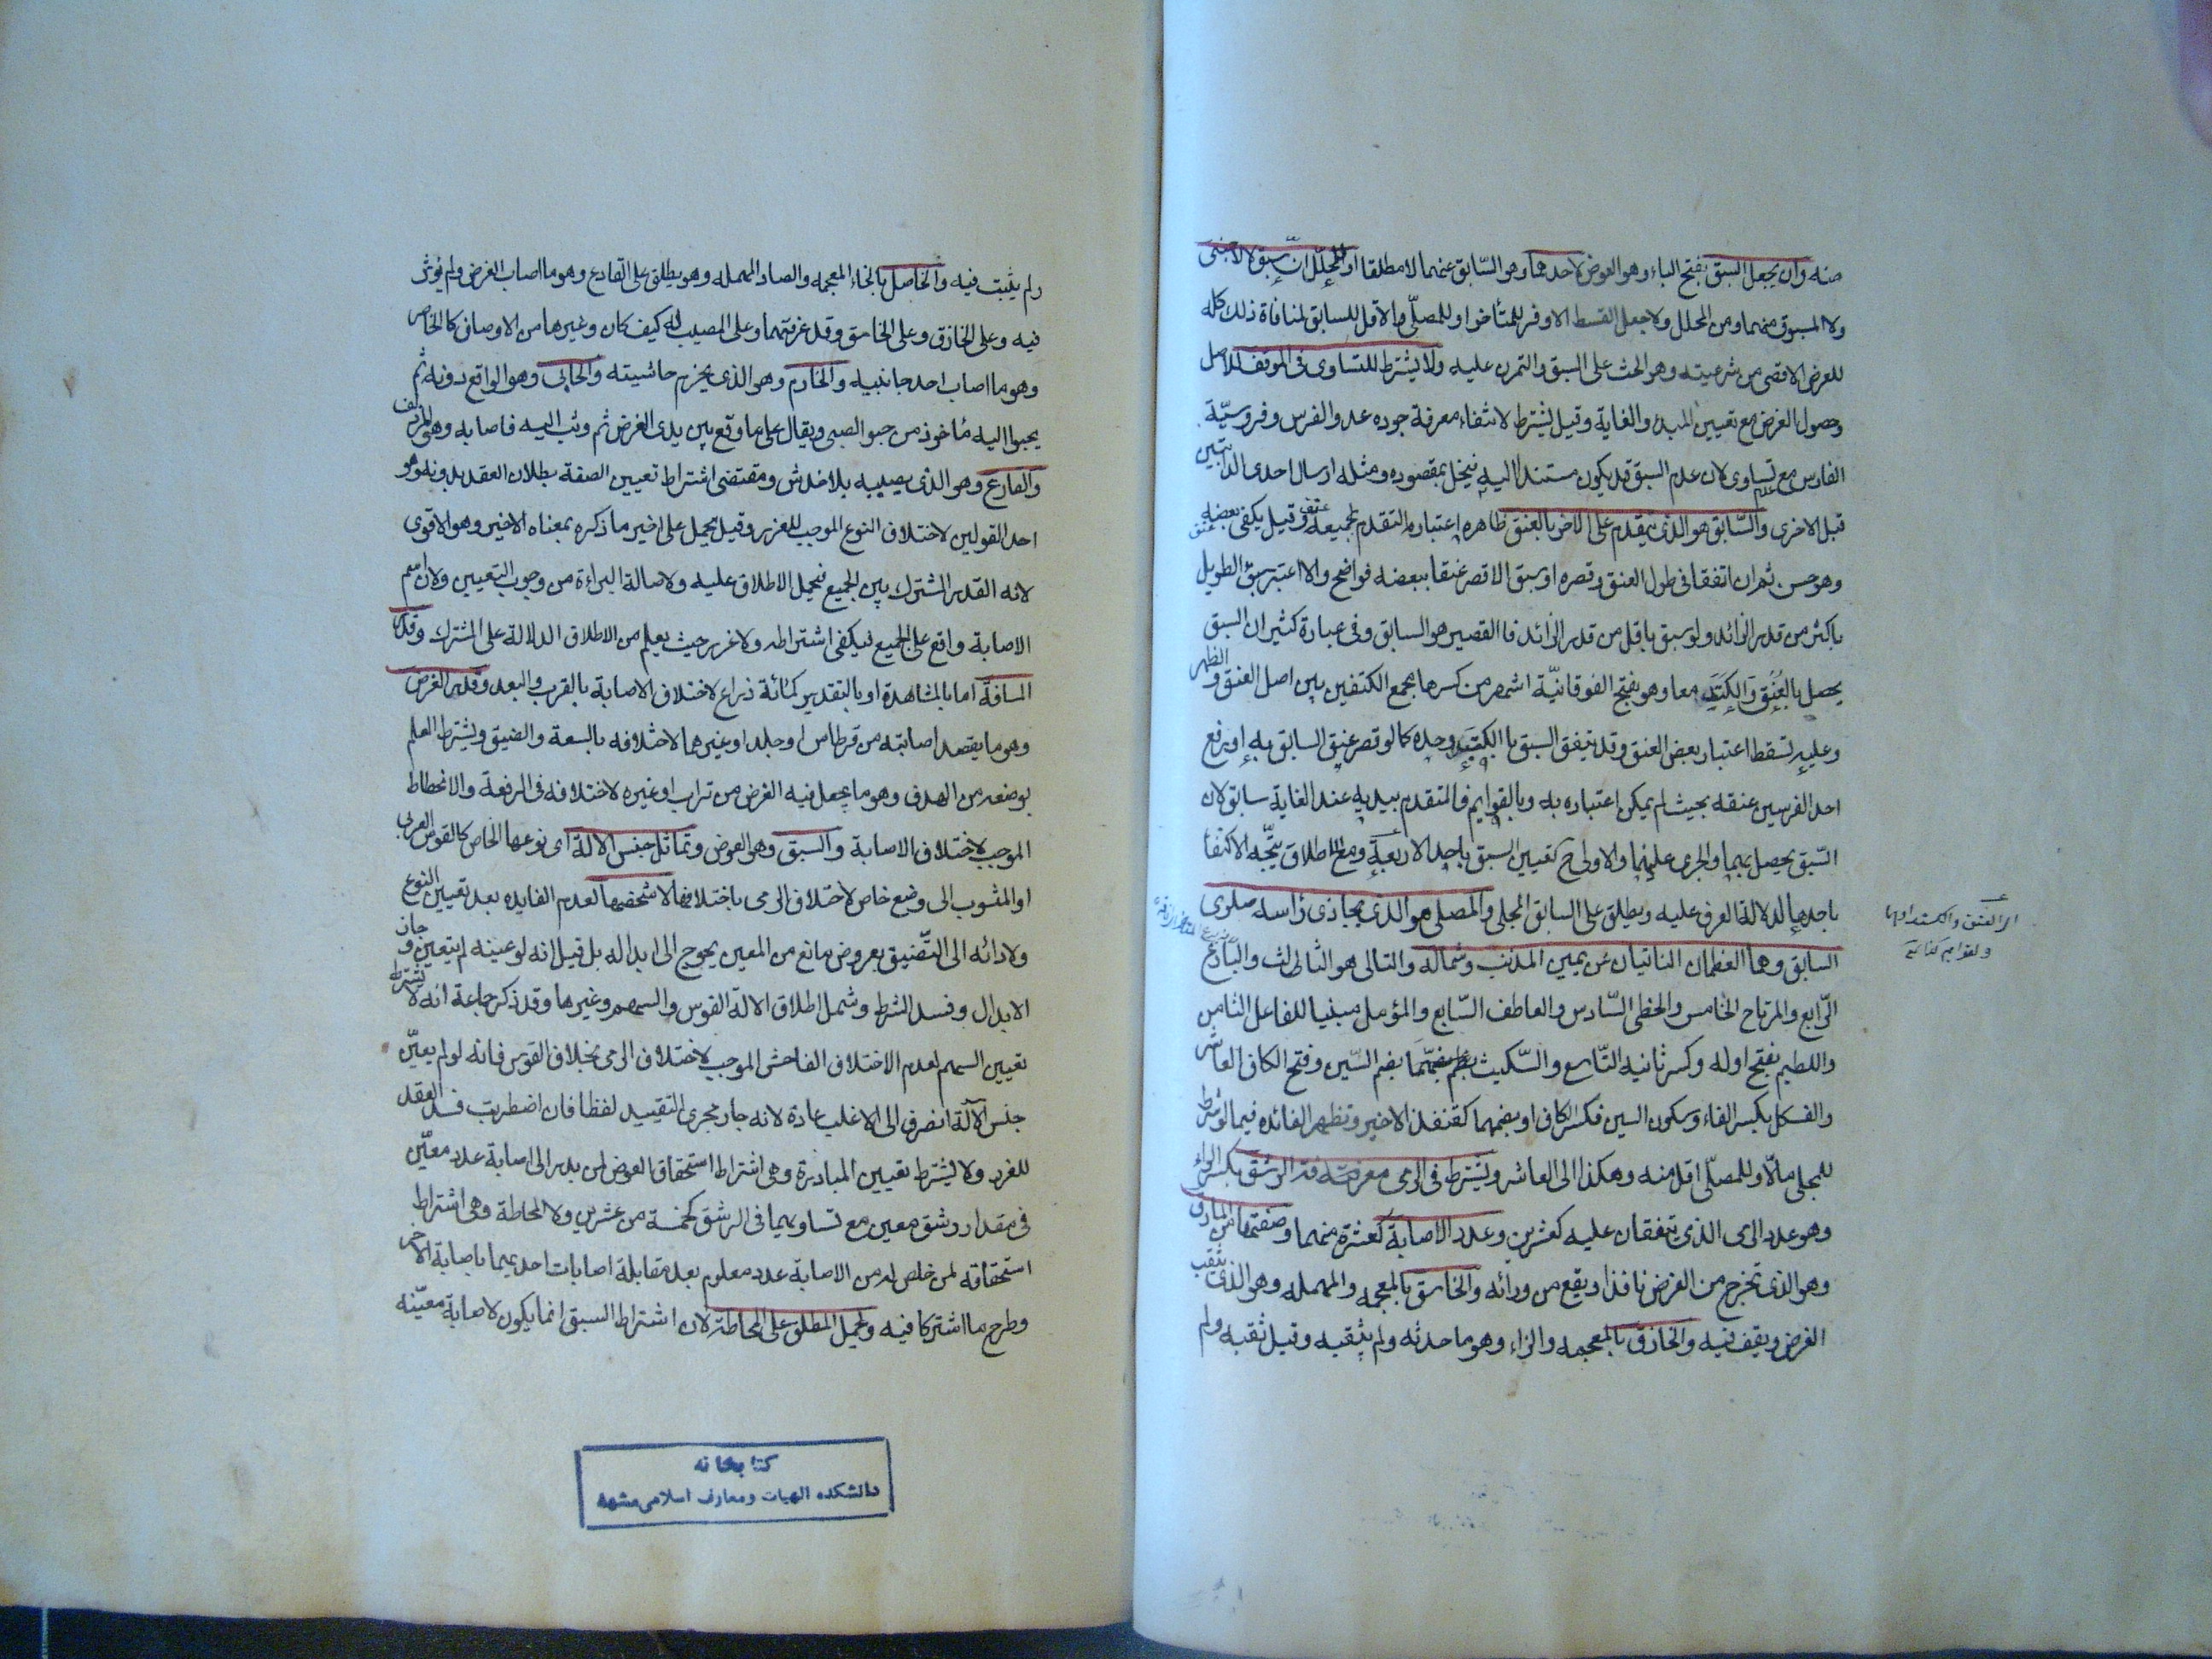 منه وان يجعل السبق بفتح الباء وهو العوض لاحدهما وهو السابق منهما لا مطلقا او للمحلل ان سبق لا لاجنبى
ولا للمسبوق منهما ومن المحلل ولا جعل القسط الاوفر للمتأخر او للمصلّى والاقل للسابق لمنافاة ذلك كله
للغرض الاقصى من شرعيته وهو الحث على السبق والتمرن عليه ولا يشترط التساوى فى الموقف للاصل
وحصول الغرض مع تعيين المبدء والغاية وقيل يشترط لانتفاء معرفة جودة عدو الفرس وفروسيّة
الفارس مع عدم تساوى لان عدم السبق قد يكون مستندا اليه فيخل بمقصوده ومثله ارسال احدى الدابتين
قبل الاخرى والسّابق هو الذى يتقدم على الاخر بالعنق ظاهره اعتباره التقدم بجميعه وقيل يكفى بعضه
وهو حسن ثم ان اتفقا فى طول العنق وقصره او سبق الاقصر عنقا ببعضه فواضح والا اعتبر سبق الطويل
باكثر من قدر الزائد ولو سبق باقل من قدر الزائد فالقصير هو السابق وفى عبارة كثير ان السبق
يحصل بالعنق والكتد معا وهو بفتح الفوقانيّة اشهر من كسرها مجمع الكتفين بين اصل العنق والظهر
وعليه يسقط اعتبار بعض العنق وقد يتفق السبق بالكتد وحده كما لو قصر عنق السابق به او رفع
احد الفرسين عنقه بحيث لم يمكن اعتباره به وبالقوايم فالمتقدم بيديه عند الغاية سابق لان
السّبق يحصل بهما والجرى عليهما والاولى ح تعيين السبق باحد الاربعة ومع الاطلاق يتّجه الاكتفاء
باحدها لدلالة العرف عليه ويطلق على السابق المجلى والمصلى هو الذى يحاذى راسه صلوى
السابق وهما العظمان النابتان عن يمين الذنب وشماله والتالى هو الثالث والبارع
الرّابع والمرتاح الخامس والحظى السّادس والعاطف السّابع والمؤمل مبنيا للفاعل الثامن
واللطيم بفتح اوله وكسر ثانيه التّاسع والسّكيت بضم السّين وفتح الكاف العاشر
والفسكل بكسر الفاء وسكون السين فكسر الكاف او بضمهما كقنفذ الاخير وتظهر الفائده فيما لو شرط
للمجلى مالا وللمصلّى اقل منه وهكذا الى العاشر ويشترط فى الرمى معرفته قدر الرشق بكسر الراء
وهو عدد الرمى الذى يتفقان عليه كعشرين وعدد الاصابة كعشرة منهما وصفتها من المارق
وهو الذى يخرج من الغرض نافذا ويقع من ورائه والخاسق بالمعجمه والمهمله وهو الذى يثقب
الغرض ويقف فيه والخازق بالمعجمه والزاء وهو ما خدشه ولم يثقبه وقيل ثقبه ولم
ولم يثبت فيه والخاصل بالخاء المعجمه والصاد المهمله وهو يطلق على القارع وهو ما اصاب الغرض ولم يؤثر
فيه وعلى الخازق وعلى الخاسق وقد عرفتهما وعلى المصيب له كيف كان وغيرها من الاوصاف كالخاصر
وهو ما اصاب احد جانبيه والخارم وهو الذى يخرم حاشيته والحابى وهو الواقع دونه ثم
يحبوا اليه مأخوذ من حبو الصبى ويقال على ما وقع بين يدى الغرض ثم وثب اليه فاصابه وهى المزدلف
والقارع وهو الذى يصيبه بلا خدش ومقتضى اشتراط تعيين الصفة بطلان العقد بدونه وهو
احد القولين لاختلاف النوع الموجب للغرر وقيل يحمل على اخير ما ذكره بمعناه الاخير وهو الاقوى
لانه القدر المشترك بين الجميع فيحمل الاطلاق عليه ولاصالة البراءة من وجوب التعيين ولان اسم
الاصابة واقع على الجميع فيكفى اشتراطه ولا غرر حيث يعلم من الاطلاق الدلالة على المشترك وقدر
المسافة اما بالمشاهدة او بالتقدير كمائة ذراع لاختلاف الاصابة بالقرب والبعد وقدر الغرض
وهو ما يقصد اصابته من قرطاس او جلد او غيرهما لاختلافه بالسعة والضيق ويشترط العلم
بوضعه من الهدف وهو ما يجعل فيه الغرض من تراب او غيره لاختلافه فى الرفعة والانحطاط
الموجب لاختلاف الاصابة والسبق وهو العوض وتماثل جنس الالة اى نوعها الخاص كالقوس العربى
او المنسوب الى وضع خاص لاختلاف الرمى باختلافها لا شخصها لعدم الفايده بعد تعيين النوع
ولادائه الى التّضييق بعروض مانع من المعين يحوج الى ابداله بل قيل انه لو عينه لم يتعين وجاز
الابدال وفسد الشرط وشمل اطلاق الالة القوس والسهم وغيرها وقد ذكر جاعة انه لا يشترط
تعيين السهم لعدم الاختلاف الفاحش الموجب لاختلاف الرمى بخلاف القوس فانه لو لم يعيّن
جنس الآلة انصرف الى الاغلب عادة لانه جار مجرى التقييد لفظا فان اضطربت فسد العقد
للغرر ولا يشترط تعيين المبادرة وهى اشتراط استحقاق العوض لمن بدر الى اصابة عدد معيّن
فى مقدار رشق معين مع تساويهما فى الرشق كخمسة من عشرين ولا المحاطة وهى اشتراط
استحقاقه لمن خلص له من الاصابة عدد معلوم بعد مقابلة اصابات احديهما باصابة الاخر
وطرح ما اشتركا فيه ويحمل المطلق على المحاطة لان اشتراط السبق انما يكون لاصابة معيّنه
كتابخانه
دانشکده الهیات و معارف اسلامی مشهد